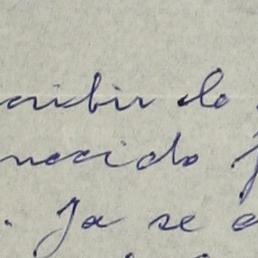 cribir lo
nocido
. Ya se